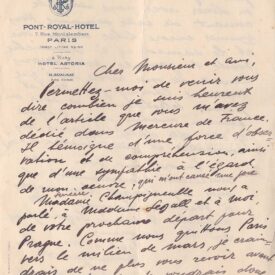 PONT-ROYAL-HOTEL
7, Rue Montalembert
PARIS
A Vichy
HOTEL ASTORIA
Cher Monsieur et ami,
Permettez-moi de venir vous
dire combien je suis heureux
de l'article que vous m'avez
dédié dans Mercure de France.
Il témoigne d'une force d'obser-
vation et de compréhension, ainsi
que d'une sympathie à l'égard
de mon œuvre, qui m'ont causé une joie
Madame Champigneulle nous a
parlé, à Madame Segall et à moi
de votre prochain départ pour
Prague. Comme nous quittons Paris
vers le milieu de mars, je
de ne plus vous revoir avant